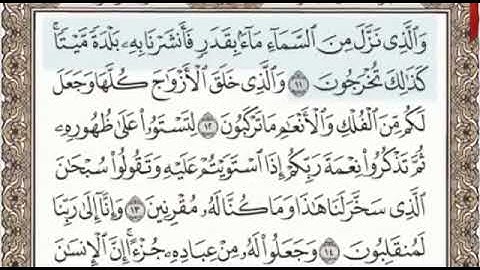 وَٱلَّذِى نَزَّلَ مِنَ ٱلسَّمَآءِ مَآءًۢ بِقَدَرٍ فَأَنشَرْنَا بِهِۦ بَلْدَةً مَّيْتًا ۚ
كَذَٰلِكَ تُخْرَجُونَ ١١ وَٱلَّذِى خَلَقَ ٱلْأَزْوَٰجَ كُلَّهَا وَجَعَلَ
لَكُم مِّنَ ٱلْفُلْكِ وَٱلْأَنْعَٰمِ مَا تَرْكَبُونَ ١٢ لِتَسْتَوُۥا۟ عَلَىٰ ظُهُورِهِۦ
ثُمَّ تَذْكُرُوا۟ نِعْمَةَ رَبِّكُمْ إِذَا ٱسْتَوَيْتُمْ عَلَيْهِ وَتَقُولُوا۟ سُبْحَٰنَ
ٱلَّذِى سَخَّرَ لَنَا هَٰذَا وَمَا كُنَّا لَهُۥ مُقْرِنِينَ ١٣ وَإِنَّآ إِلَىٰ رَبِّنَا
لَمُنقَلِبُونَ ١٤ وَجَعَلُوا۟ لَهُۥ مِنْ عِبَادِهِۦ جُزْءًا ۚ إِنَّ ٱلْإِنسَٰنَ